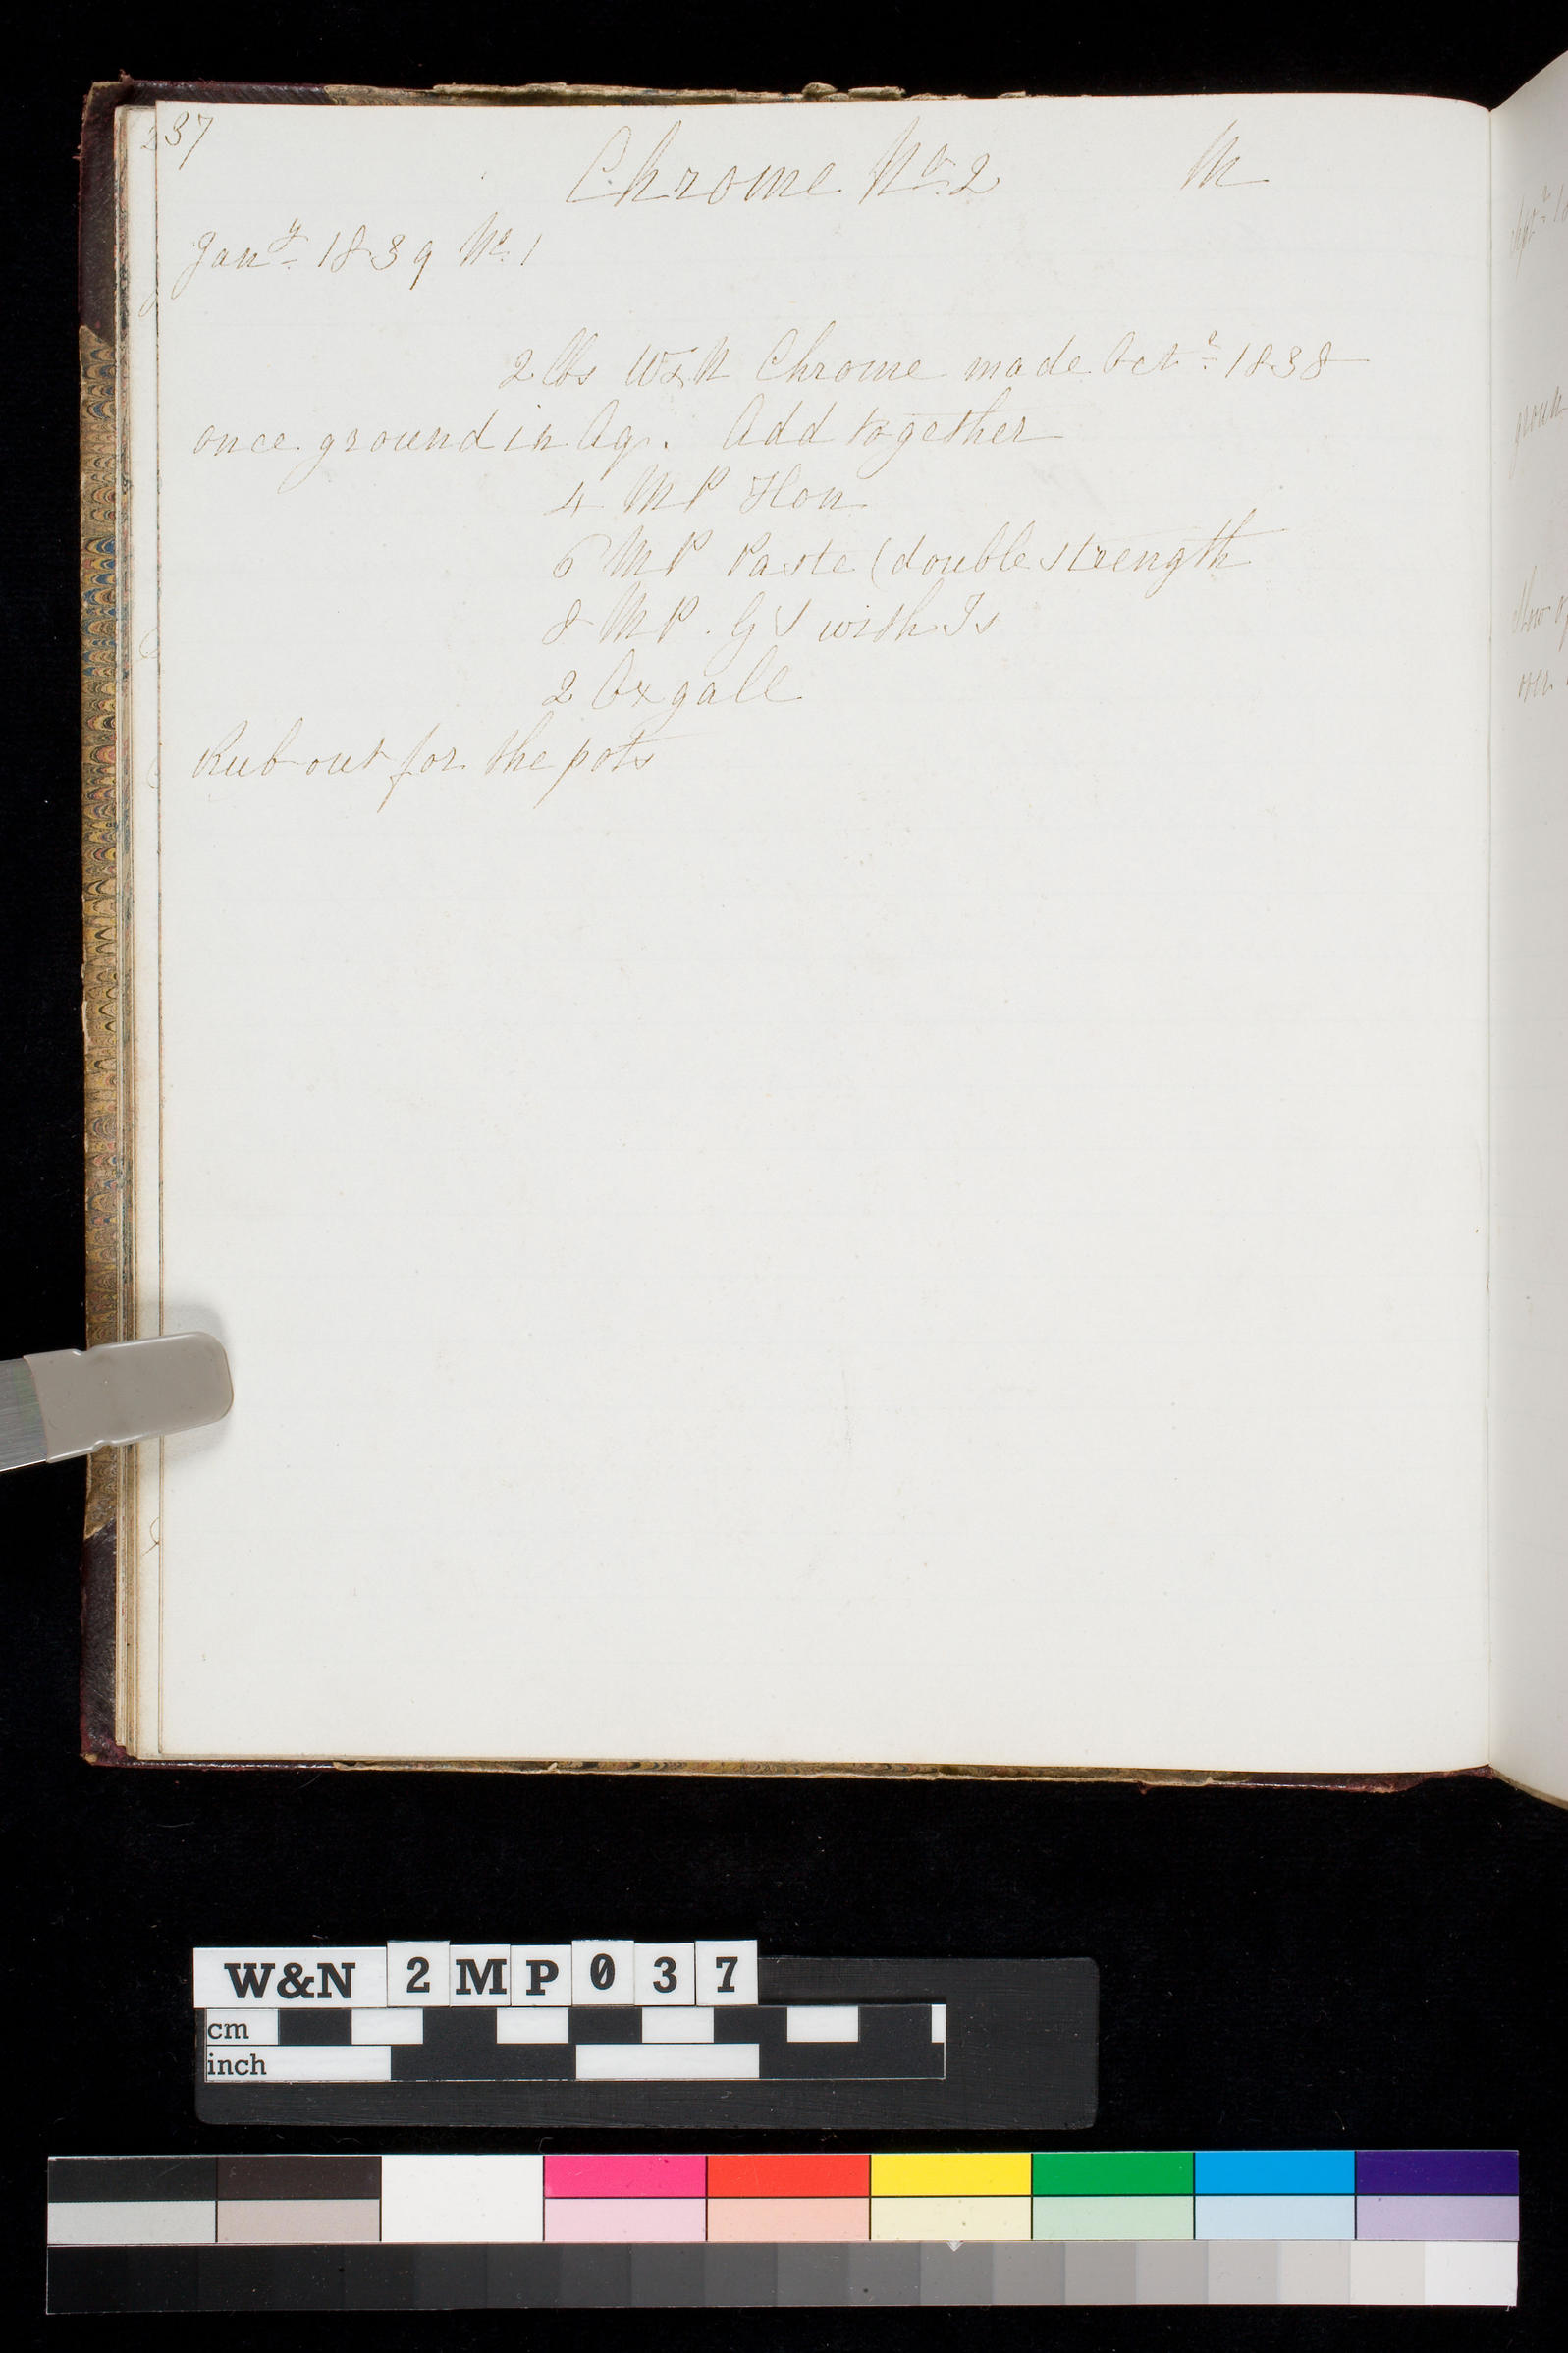 37
Chrome No. 2 M
Jany. 1839 No. 1
2 lbs W&N Chrome made Octr. 1838
once ground in Aq. Add together
4 MP Hon
6 MP Paste (double strength
8 MP. GS with Is
2 Oxgall
Rub out for the pots
W&N 2MP037
cm
inch